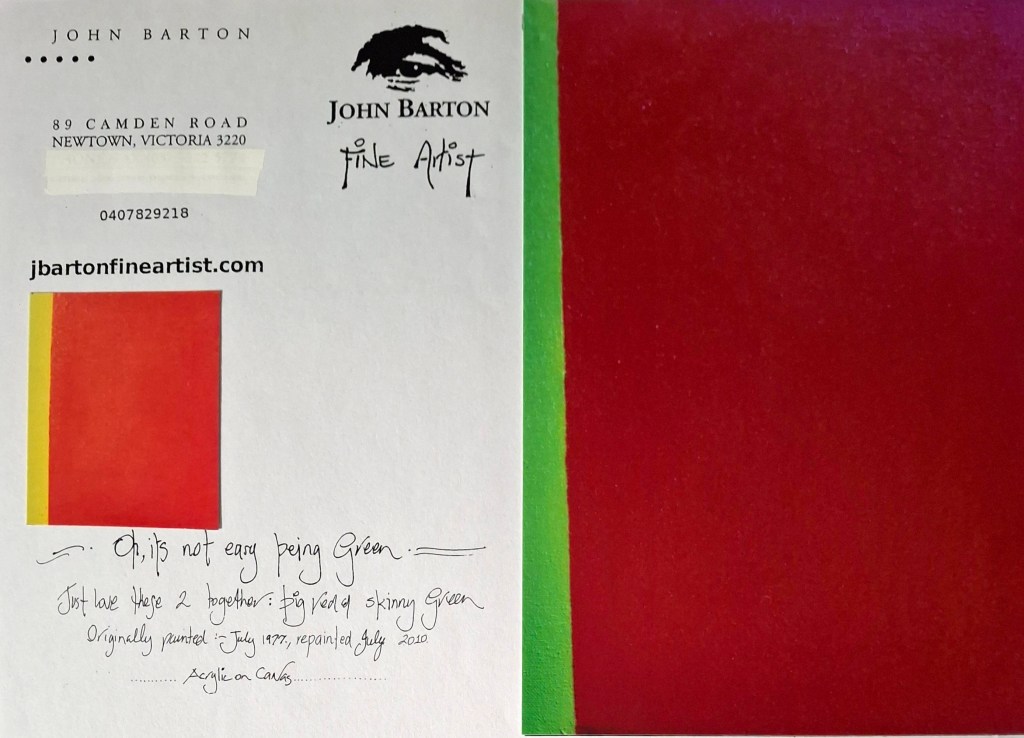 JOHN BARTON
89 CAMDEN ROAD
NEWTOWN, VICTORIA 3220
0407829218
jbartonfineartist.com
JOHN BARTON
FINE Artist
Oh, it's not easy being Green
Just love these 2 together: big red & skinny Green
Originally painted :- July 1977, repainted July 2010
Acrylic on Canvas